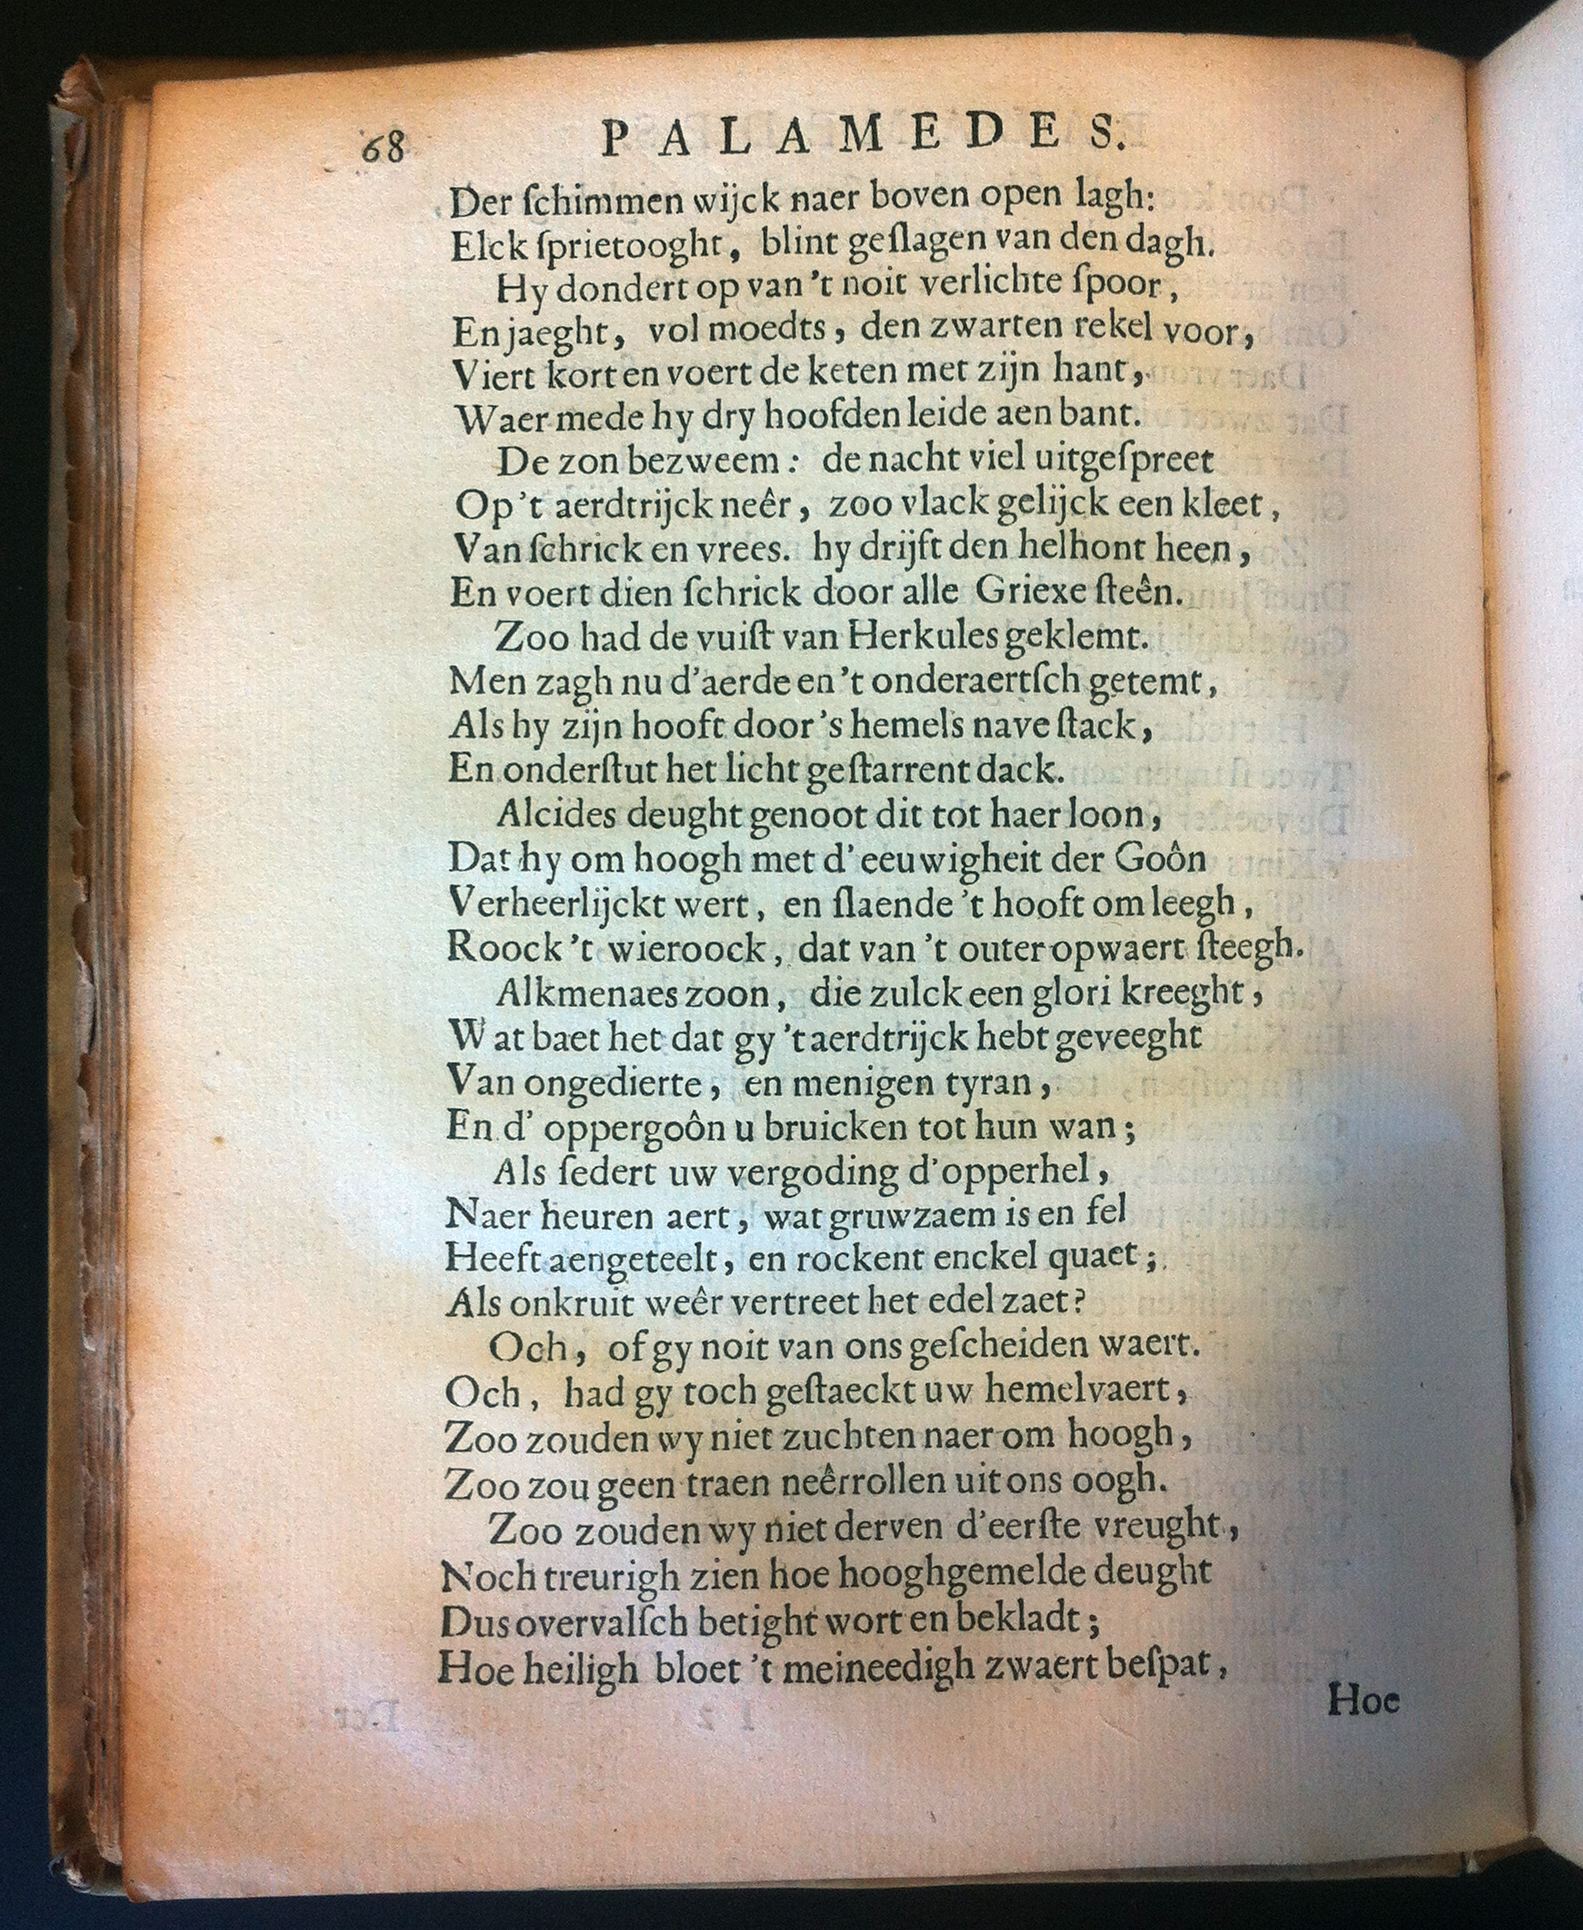 68 PALAMEDES.
Der ſchimmen wijck naer boven open lagh:
Elck ſprietooght, blint geſlagen van den dagh.
Hy dondert op van 't noit verlichte ſpoor,
En jaeght, vol moedts, den zwarten rekel voor,
Viert kort en voert de keten met zijn hant,
Waer mede hy dry hoofden leide aen bant.
De zon bezweem: de nacht viel uitgeſpreet
Op 't aerdtrijck neêr, zoo vlack gelijck een kleet,
Van ſchrick en vrees. hy drijft den helhont heen,
En voert dien ſchrick door alle Griexe ſteên.
Zoo had de vuiſt van Herkules geklemt.
Men zagh nu d'aerde en 't onderaertſch getemt,
Als hy zijn hooft door 's hemels nave ſtack,
En onderſtut het licht geſtarrent dack.
Alcides deught genoot dit tot haer loon,
Dat hy om hoogh met d' eeuwigheit der Goôn
Verheerlijckt wert, en ſlaende 't hooft om leegh,
Roock 't wieroock, dat van 't outer opwaert ſteegh.
Alkmenaes zoon, die zulck een glori kreeght,
Wat baet het dat gy 't aerdtrijck hebt geveeght
Van ongedierte, en menigen tyran,
En d' oppergoôn u bruicken tot hun wan;
Als ſedert uw vergoding d'opperhel,
Naer heuren aert, wat gruwzaem is en fel
Heeft aengeteelt, en rockent enckel quaet;
Als onkruit weêr vertreet het edel zaet?
Och, of gy noit van ons geſcheiden waert.
Och, had gy toch geſtaeckt uw hemelvaert,
Zoo zouden wy niet zuchten naer om hoogh,
Zoo zou geen traen neêrrollen uit ons oogh.
Zoo zouden wy niet derven d'eerſte vreught,
Noch treurigh zien hoe hooghgemelde deught
Dus overvalſch betight wort en bekladt;
Hoe heiligh bloet 't meineedigh zwaert beſpat,
Hoe